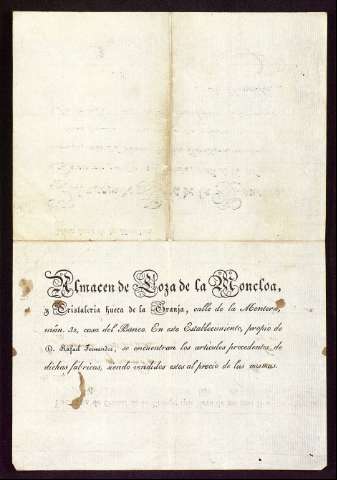 Almacen de Loza de la Moncloa,
y Cristaleria hueca de la Granja, calle de la Montera,
núm. 32, casa del Banco. En este Establecimiento, propio de
D. Rafael Fernandez, se encuentran los articulos procedentes de
dichas fabricas, siendo vendidos estos al precio de las mismas.